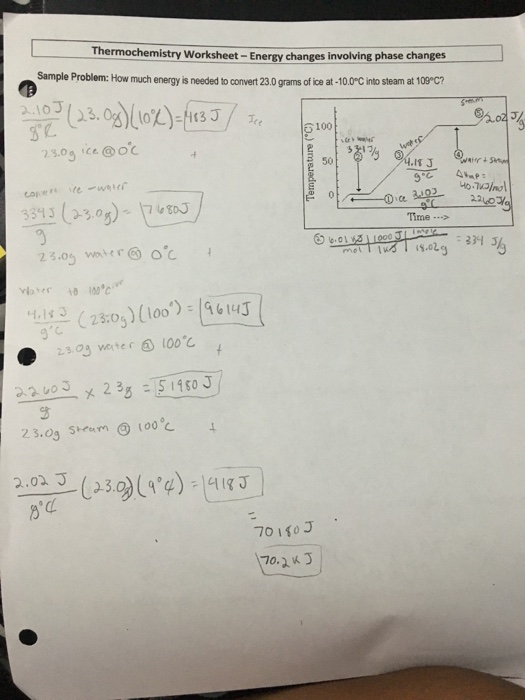 Thermochemistry Worksheet – Energy changes involving phase changes
Sample Problem: How much energy is needed to convert 23.0 grams of ice at -10.0°C into steam at 109°C?
2.10J/g°C (23.0g)(10°C)=483J Ice
23.0g ice @ 0°C +
convert ice - water
334J/g (23.0g) = 7680J
23.0g water @ 0°C +
Water to 100°C
4.18J/g°C (23.0g)(100°) = 9614J
23.0g water @ 100°C +
2260J/g x 23g = 51980 J
23.0g Steam @ 100°C +
2.02 J/g°C (23.0g)(9°C) = 418J
=
70180J
70.2KJ
Temperature (°C)
100
50
0
Time --->
① ice 2.10J/g°C
334J/g
③ water
4.18 J/g°C
④ water + steam
ΔHvap =
40.7KJ/mol
2260J/g
steam
⑤ 2.02 J/g
② 6.01 KJ/mol | 1000J/1KJ | 1mole/18.02g = 334 J/g